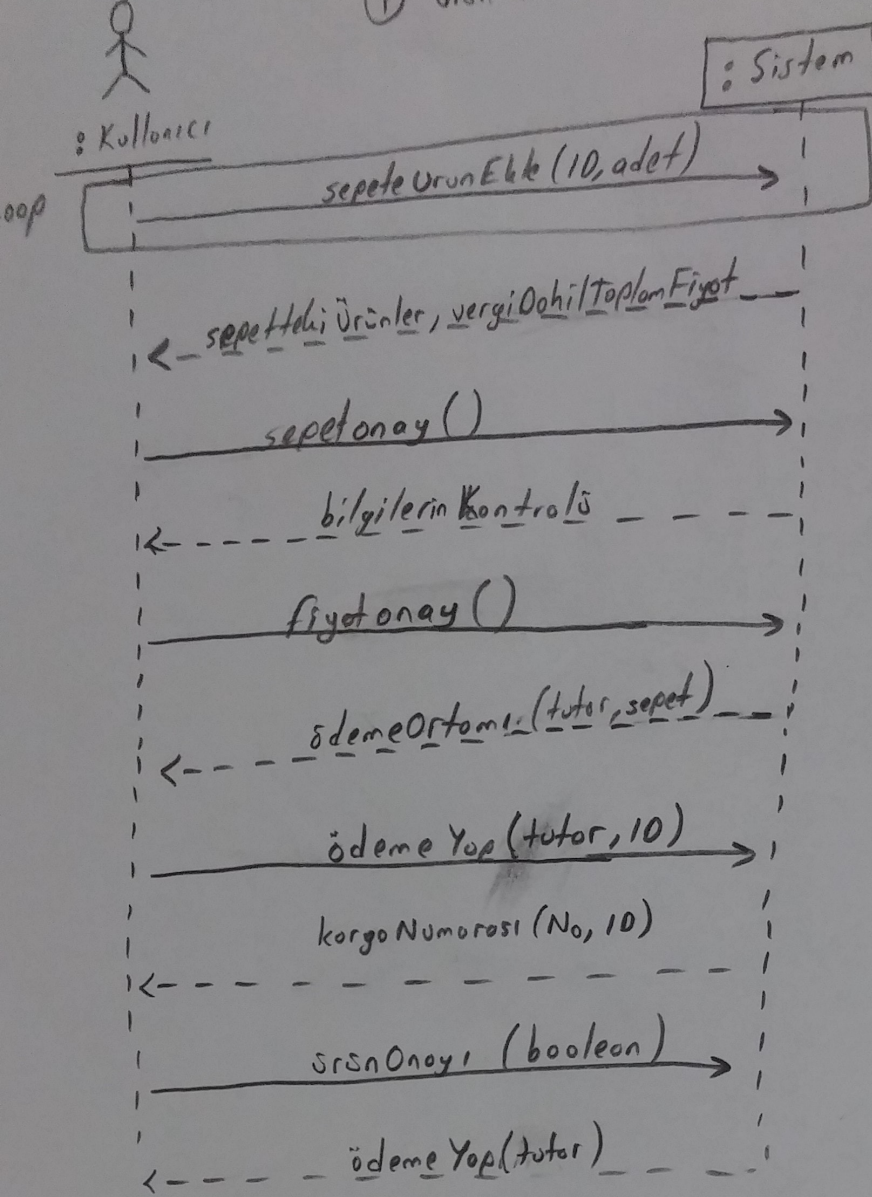 1
: Sistem
: Kullanıcı
oop
sepeteUrunEkle (ID, adet)
sepettekiÜrünler, vergiDahilToplamFiyat
sepetonay ()
bilgilerin Kontrolü
fiyatonay ()
ödemeOrtamı (tutar, sepet)
ödeme Yap (tutar, ID)
kargoNumarası (No, ID)
ürünOnayı (boolean)
ödeme Yap(tutar)